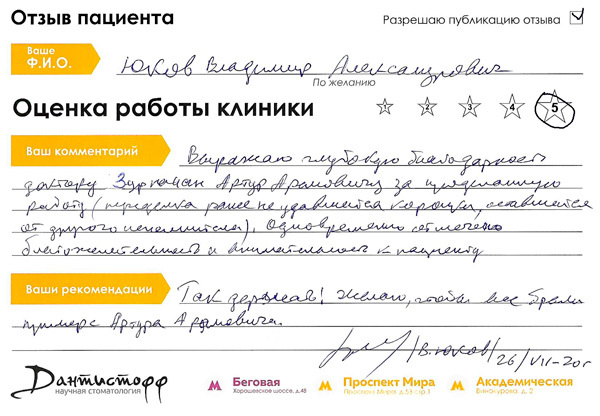 Отзыв пациента
Разрешаю публикацию отзыва
Ваше
Ф.И.О.
Юков Владимир Александрович
По желанию
Оценка работы клиники
1 2 3 4 5
Ваш комментарий
Выражаю глубокую благодарность
доктору Артур Арамовичу за проделанную
работу (переделка ранее не удавшейся коронки, оставшейся
от другого исполнителя). Одновременно отмечено
благожелательность и внимательность к пациенту
Ваши рекомендации
Так держать! Желаю, чтобы все брали
пример с Артура Арамовича.
/В. Юков/ 26/VII-20г
Дантистофф
научная стоматология
М Беговая
Хорошевское шоссе, д.48
М Проспект Мира
Проспект Мира, д.58 стр.1
М Академическая
Винокурова, д. 2